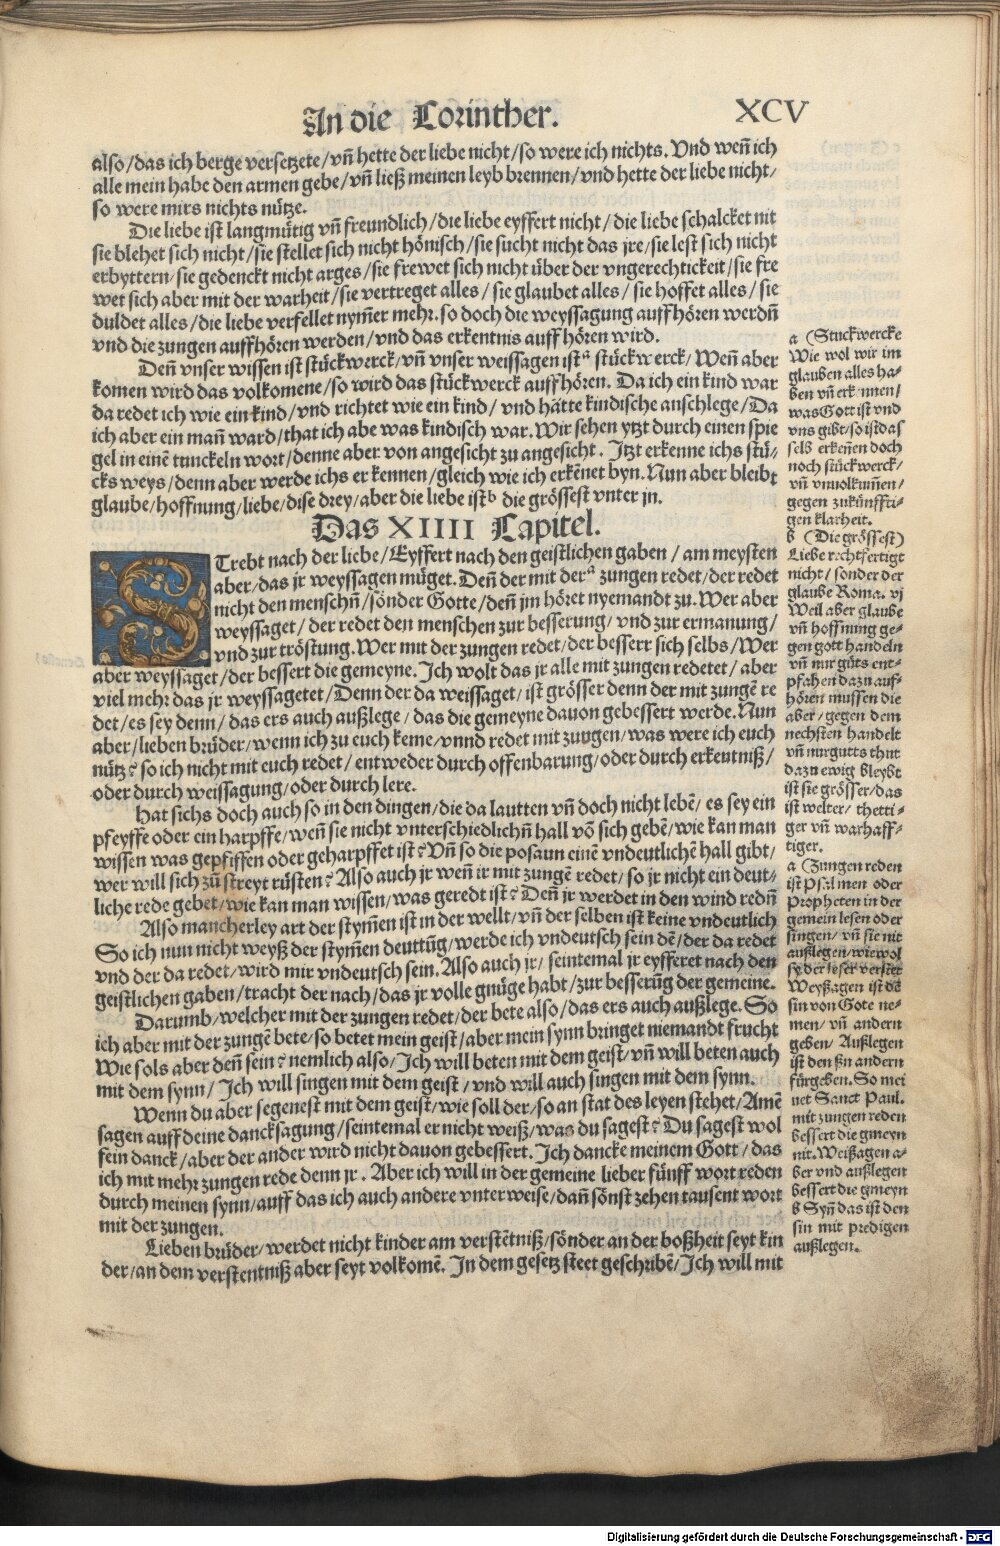 An die Corinther. XCV
also/das ich berge versetzete/vñ hette der liebe nicht/so were ich nichts. Vnd weñ ich
alle mein habe den armen gebe/vñ ließ meinen leyb brennen/vnd hette der liebe nicht/
so were mirs nichts nütze.
Die liebe ist langmütig vñ freundlich/die liebe eyffert nicht/die liebe schalcket nit
sie blehet sich nicht/sie stellet sich nicht hönisch/sie sucht nicht das jre/sie lest sich nicht
erbyttern/sie gedenckt nicht arges/sie frewet sich nicht über der vngerechtickeit/sie fre
wet sich aber mit der warheit/sie vertreget alles/sie glaubet alles/sie hoffet alles/sie
duldet alles/die liebe verfellet nym̃er mehr. so doch die weyssagung auffhören werdñ
vnd die zungen auffhören werden/vnd das erkentnis auff hören wird.
Deñ vnser wissen ist stückwerck/vñ vnser weissagen istª stückwerck/Weñ aber
komen wird das volkomene/so wird das stückwerck auffhören. Da ich ein kind war
da redet ich wie ein kind/vnd richtet wie ein kind/vnd hätte kindische anschlege/Da
ich aber ein mañ ward/that ich abe was kindisch war. Wir sehen ytzt durch einen spie
gel in einẽ tunckeln wort/denne aber von angesicht zu angesicht. Itzt erkenne ichs stü-
cks weys/denn aber werde ichs erkennen/gleich wie ich erkẽnet byn. Nun aber bleibt
glaube/hoffnung/liebe/dise drey/aber die liebe istᵇ die grössest vnter jn.
Das XIIII Capitel.
STrebt nach der liebe/Eyffert nach den geistlichen gaben/am meysten
aber/das jr weyssagen müget. Deñ der mit derª zungen redet/der redet
nicht den menschñ/sönder Gotte/deñ jm höret nyemandt zu. Wer aber
weyssaget/der redet den menschen zur besserung/vnd zur ermanung/
vnd zur tröstung. Wer mit der zungen redet/der bessert sich selbs/Wer
aber weyssaget/der bessert die gemeyne. Ich wolt das jr alle mit zungen redetet/aber
viel mehr das jr weyssagetet/Denn der da weissaget/ist grösser denn der mit zungẽ re
det/es sey denn/das ers auch außlege/das die gemeyne dauon gebessert werde. Nun
aber/lieben brüder/wenn ich zu euch keme/vnnd redet mit zungen/was were ich euch
nütz? so ich nicht mit euch redet/entweder durch offenbarung/oder durch erkentniß/
oder durch weissagung/oder durch lere.
Hat sichs doch auch so in den dingen/die da lautten vñ doch nicht lebẽ/es sey ein
pfeyffe oder ein harpffe/weñ sie nicht vnterschiedlichñ hall võ sich gebẽ/wie kan man
wissen was gepfiffen oder geharpffet ist? Vñ so die posaun einẽ vndeutlichẽ hall gibt/
wer will sich zũ streyt rüsten? Also auch jr weñ ir mit zungẽ redet/so jr nicht ein deut-
liche rede gebet/wie kan man wissen/was geredt ist? Deñ jr werdet in den wind redñ
Also mancherley art der stym̃en ist in der wellt/vñ der selben ist keine vndeutlich
So ich nun nicht weyß der stym̃en deuttũg/werde ich vndeutsch sein dẽ/der da redet
vnd der da redet/wird mir vndeutsch sein. Also auch jr/seintemal jr eyfferet nach den
geistlichen gaben/tracht der nach/das jr volle gnüge habt/zur besserũg der gemeine.
Darumb/welcher mit der zungen redet/der bete also/das ers auch außlege. So
ich aber mit der zungẽ bete/so betet mein geist/aber mein synn bringet niemandt frucht
Wie sols aber deñ sein? nemlich also/Ich will beten mit dem geist/vñ will beten auch
mit dem synn/Ich will singen mit dem geist/vnd will auch singen mit dem synn.
Wenn du aber segenest mit dem geist/wie soll der/so an stat des leyen stehet/Amẽ
sagen auff deine dancksagung/seintemal er nicht weiß/was du sagest? Du sagest wol
fein danck/aber der ander wird nicht dauon gebessert. Ich dancke meinem Gott/das
ich mit mehr zungen rede denn jr. Aber ich will in der gemeine lieber fünff wort reden
durch meinen synn/auff das ich auch andere vnterweise/dañ sönst zehen tausent wort
mit der zungen.
Lieben brüder/werdet nicht kinder am verstẽtniß/sönder an der boßheit seyt kin
der/an dem verstentniß aber seyt volkomẽ. In dem gesetz steet geschribẽ/Ich will mit
a (Stuckwercke
Wie wol wir im
glauben alles ha-
ben vñ erkennen/
was Gott ist vnd
vns gibt/so ist das
selb erkeñen doch
noch stückwerck/
vñ vnuolkum̃en/
gegen zukünffti-
gen klarheit.
b (Die grössest)
Liebe rechtfertigt
nicht/sonder der
glaube Roma. vj
Weil aber glaube
vñ hoffnung ge-
gen gott handeln
vñ nur gůts ent-
pfahen dazu auf-
hören müssen die
aber/gegen dem
nechsten handelt
vñ nur gutts thut
dazu ewig bleybt
ist sie grösser/das
ist weiter/thetti-
ger vñ warhaff-
tiger.
a Zungen reden
ist Psalmen oder
Propheten in der
gemein lesen oder
singen/vñ sie nit
außlegen/wie wol
sy der leser verstet
Weyßagen ist dẽ
sin von Gote ne-
men/vñ andern
geben/Außlegen
ist den sin andern
fürgeben. So mei
net Sanct Paul.
mit zungen reden
bessert die gmeyn
nit. Weißagen a-
ber vnd außlegen
bessert die gmeyn
b Syñ das ist den
sin mit predigen
außlegen.
Digitalisierung gefördert durch die Deutsche Forschungsgemeinschaft - DFG